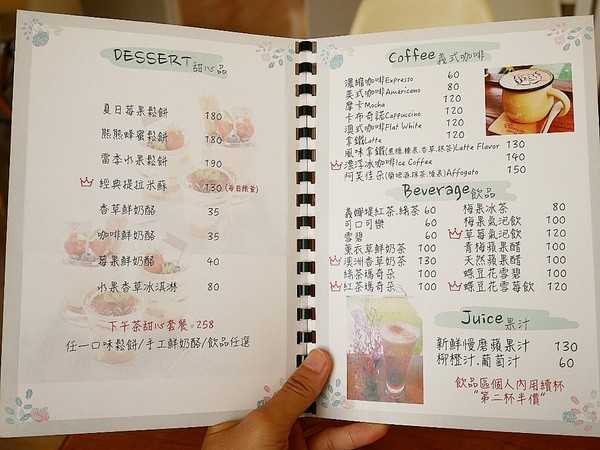 DESSERT 甜心品
夏日莓果鬆餅 180
熊熊蜂蜜鬆餅 180
當季水果鬆餅 190
經典提拉米蘇 130 (每日限量)
香草鮮奶酪 35
咖啡鮮奶酪 35
莓果鮮奶酪 40
水果香草冰淇淋 80
下午茶甜心套餐 $258
任一口味鬆餅/手工鮮奶酪/飲品任選
Coffee 義式咖啡
濃縮咖啡Expresso 60
美式咖啡Americano 80
摩卡Mocha 120
卡布奇諾Cappuccino 120
澳式咖啡Flat White 120
拿鐵Latte 120
風味拿鐵(焦糖.榛果.香草.抹茶)Latte Flavor 130
漂浮冰咖啡Ice Coffee 140
阿芙佳朵 Affogato 150
Beverage 飲品
義爛緹紅茶.綠茶 60
可口可樂 60
雪碧 60
薰衣草鮮奶茶 100
澳洲香草奶茶 130
綠茶瑪奇朵 100
紅茶瑪奇朵 100
梅果冰茶 80
梅果氣泡飲 100
草莓氣泡飲 120
青梅蘋果醋 100
天然蘋果醋 100
蝶豆花雪碧 100
蝶豆花雪莓飲 120
Juice 果汁
新鮮慢磨蘋果汁 130
柳橙汁.葡萄汁 60
飲品區個人內用續杯
"第二杯半價"